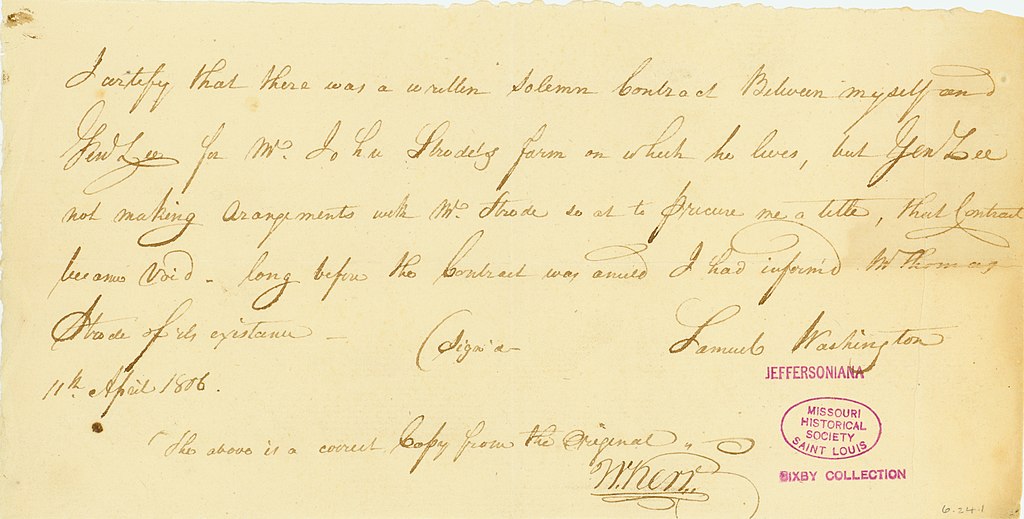 I certify that there was a written Solemn Contract Between myself and
Genl Lee for Mr. John Strode's farm on which he lives, but Genl Lee
not making Arangements with Mr. Strode so as to procure me a title, that Contract
became Void - long before the Contract was anuld I had inform'd Mr Thomas
Strode of its existance -
(Sign'd Samuel Washington
11th April 1806.
The above is a correct Copy from the Original
W. Kerr.
JEFFERSONIANA
MISSOURI
HISTORICAL
SOCIETY
SAINT LOUIS
BIXBY COLLECTION
6.24.1